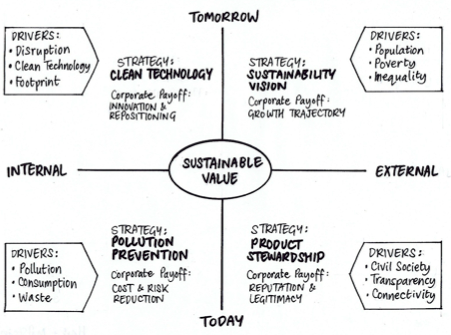 TOMORROW
DRIVERS:
• Disruption
• Clean Technology
• Footprint
STRATEGY:
CLEAN TECHNOLOGY
Corporate Payoff:
INNOVATION &
REPOSITIONING
STRATEGY:
SUSTAINABILITY
VISION
Corporate Payoff:
GROWTH TRAJECTORY
DRIVERS:
• Population
• Poverty
• Inequality
INTERNAL
SUSTAINABLE
VALUE
EXTERNAL
DRIVERS:
• Pollution
• Consumption
• Waste
STRATEGY:
POLLUTION
PREVENTION
Corporate Payoff:
COST & RISK
REDUCTION
STRATEGY:
PRODUCT
STEWARDSHIP
Corporate Payoff:
REPUTATION &
LEGITIMACY
DRIVERS:
• Civil Society
• Transparency
• Connectivity
TODAY